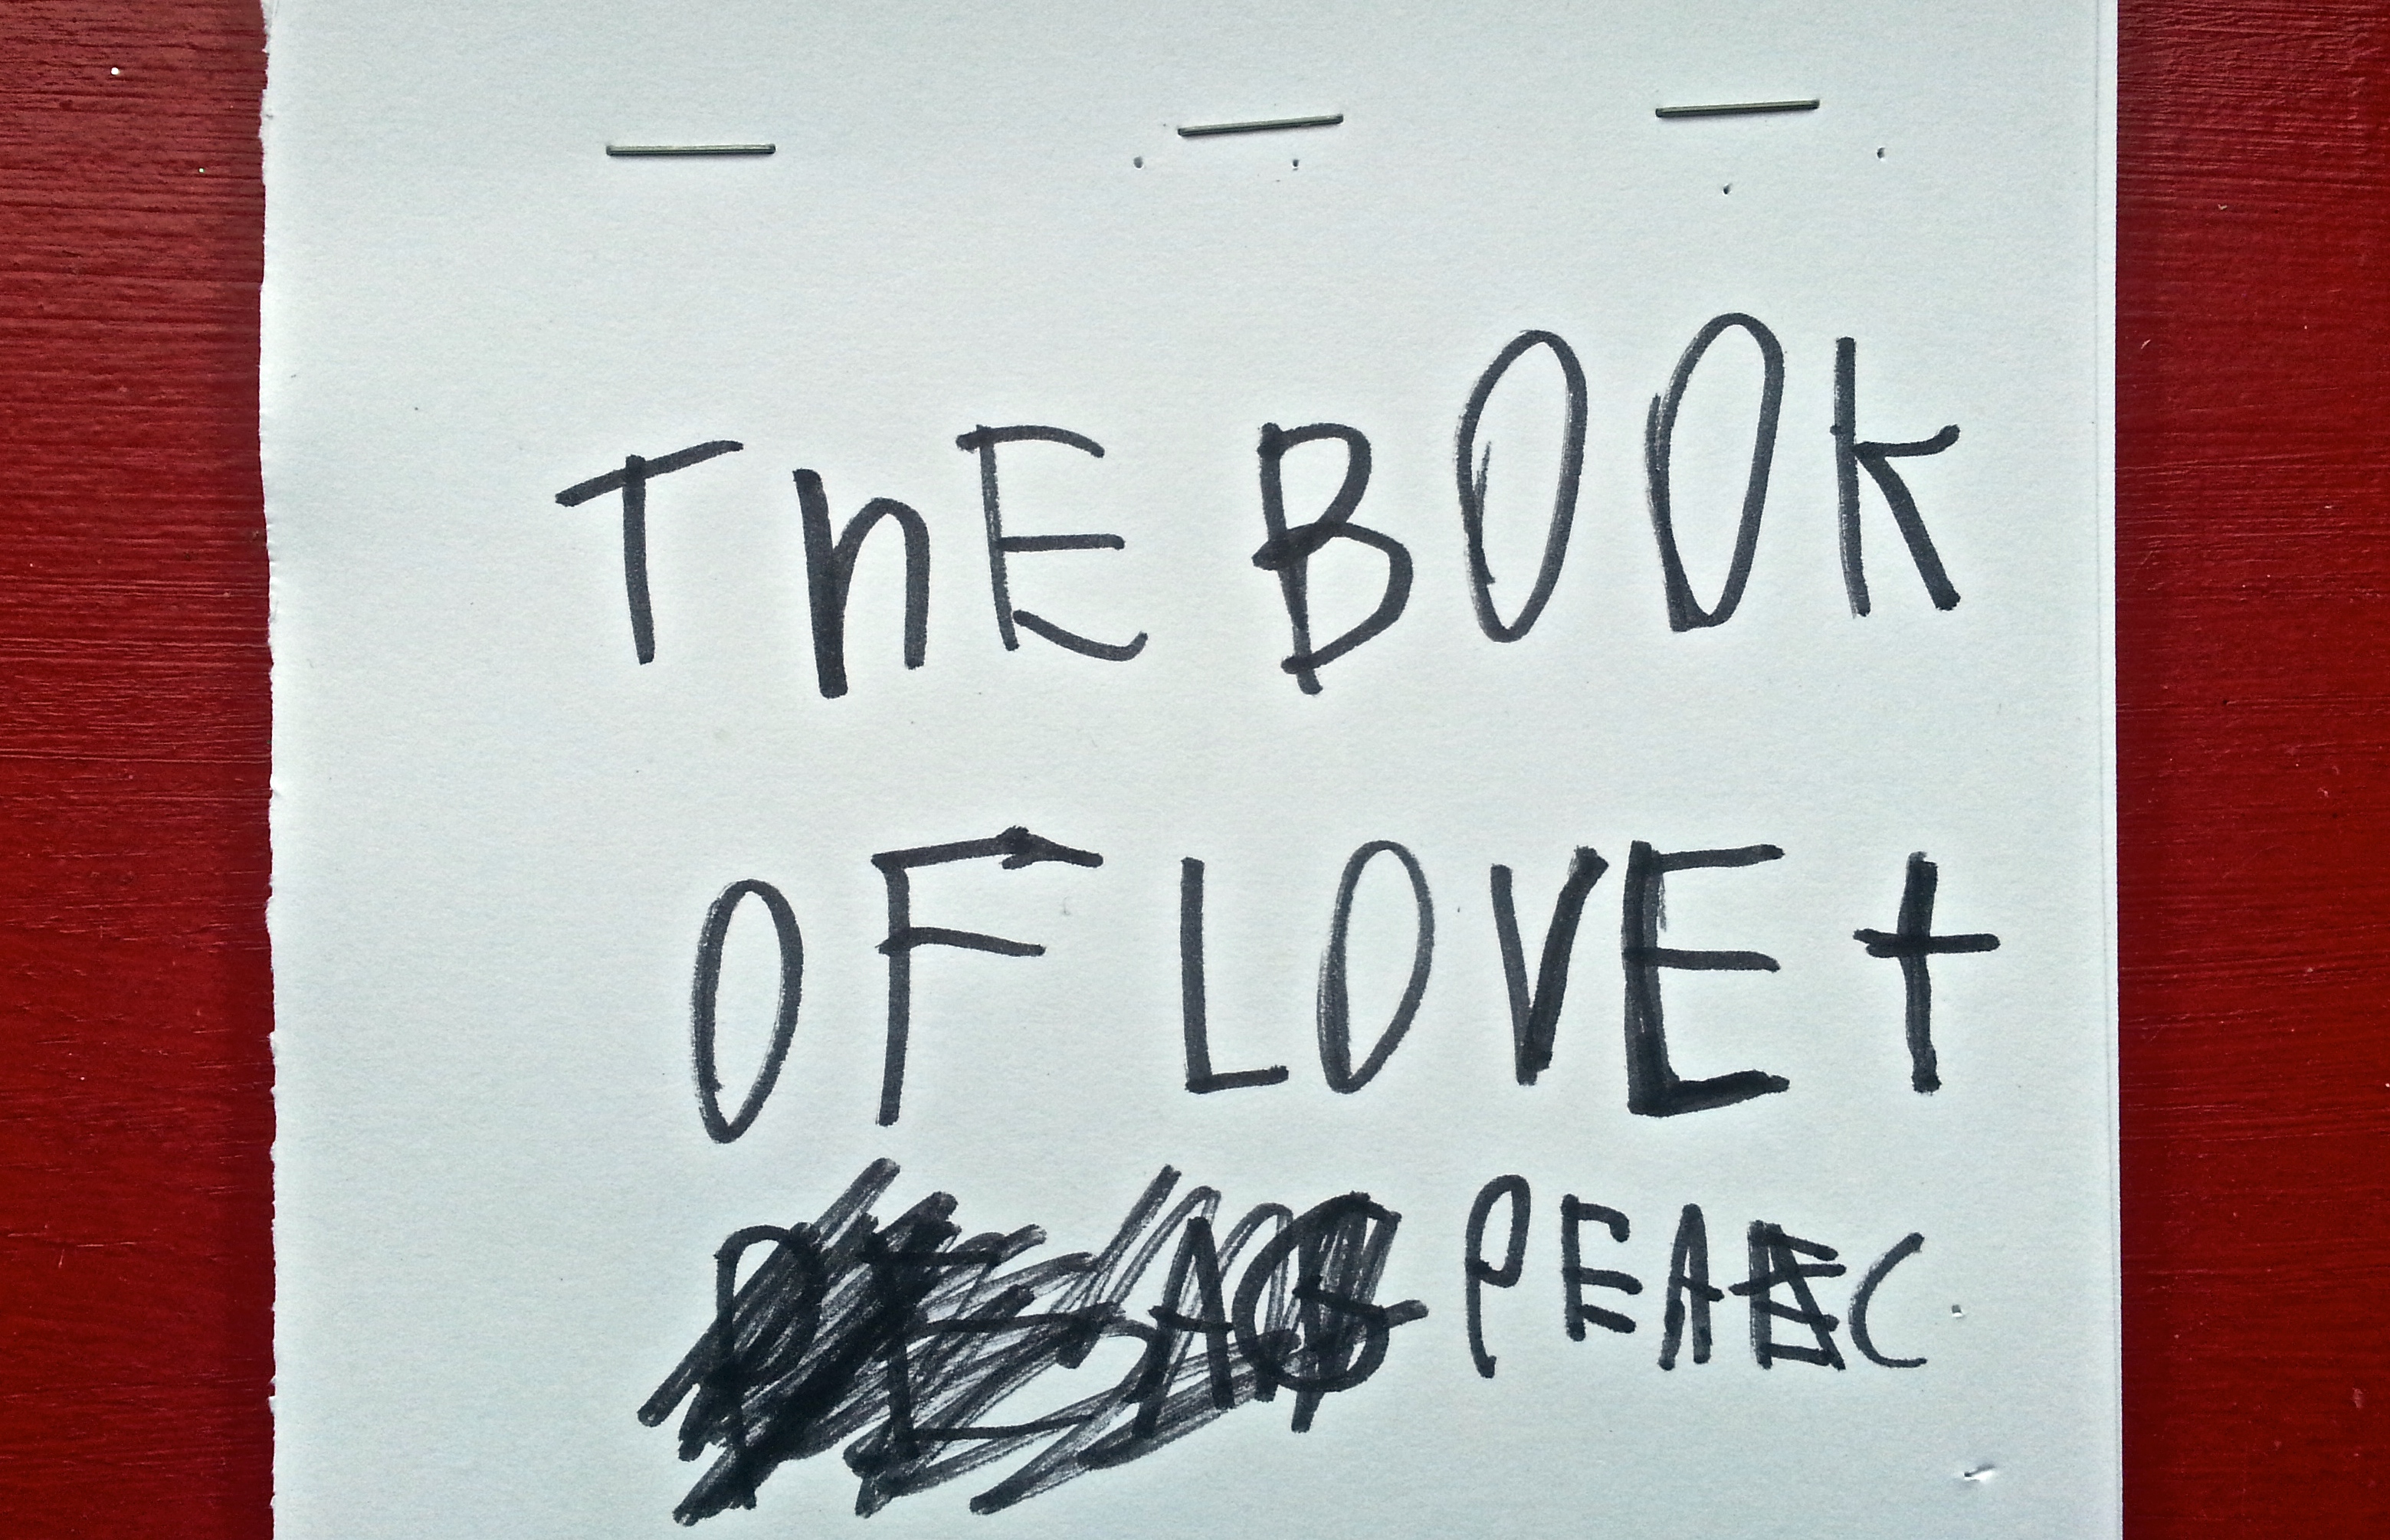 ThE BOOk
OF LOVE +
PEAEC